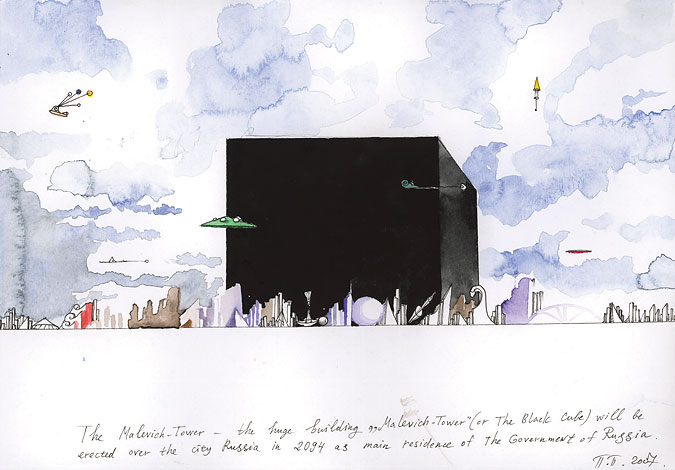 The Malevich-Tower – the huge building „Malevich-Tower" (or The Black Cube) will be
erected over the city Russia in 2094 as main residence of the Government of Russia.
П.П. 2007.